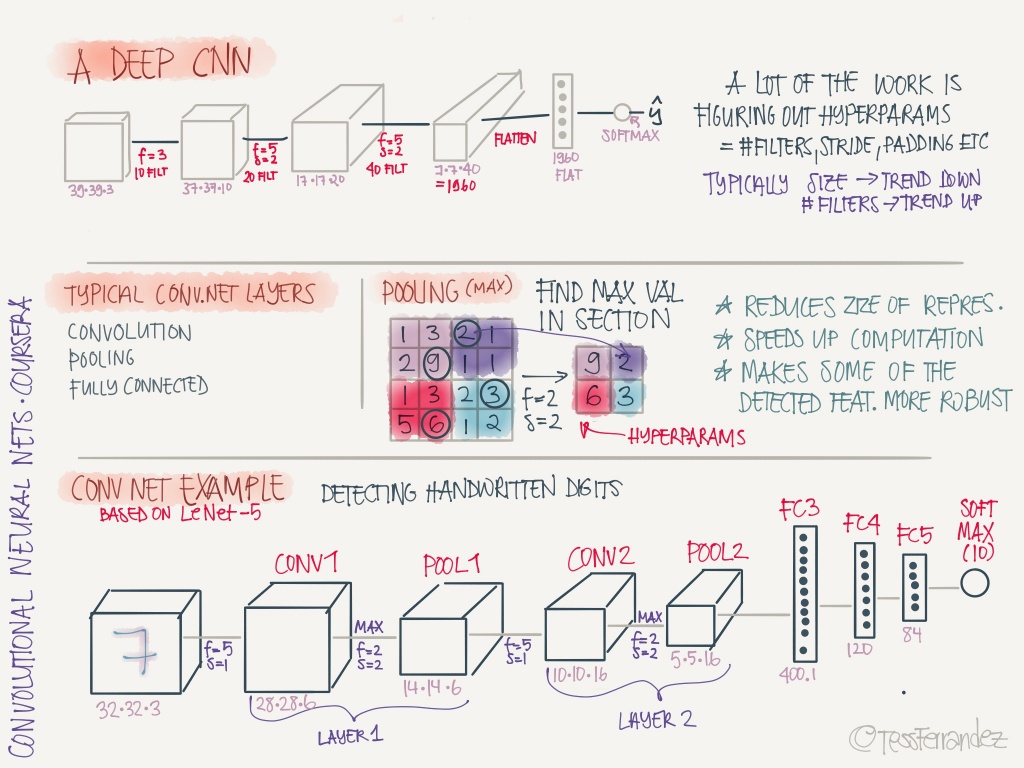 A DEEP CNN
39·39·3
f=3
10 FILT
37·37·10
f=5
s=2
20 FILT
17·17·20
f=5
s=2
40 FILT
7·7·40
=1960
FLATTEN
1960
FLAT
SOFTMAX
ŷ
A LOT OF THE WORK IS
FIGURING OUT HYPERPARAMS
= #FILTERS, STRIDE, PADDING ETC
TYPICALLY SIZE → TREND DOWN
#FILTERS → TREND UP
TYPICAL CONV.NET LAYERS
CONVOLUTION
POOLING
FULLY CONNECTED
POOLING (MAX)
FIND MAX VAL
IN SECTION
1 3 2 1
2 9 1 1
1 3 2 3
5 6 1 2
f=2
s=2
9 2
6 3
HYPERPARAMS
★ REDUCES SIZE OF REPRES.
★ SPEEDS UP COMPUTATION
★ MAKES SOME OF THE
DETECTED FEAT. MORE ROBUST
CONV NET EXAMPLE
BASED ON LeNet-5
DETECTING HANDWRITTEN DIGITS
7
32·32·3
f=5
s=1
CONV1
28·28·6
MAX
f=2
s=2
POOL1
14·14·6
LAYER 1
f=5
s=1
CONV2
10·10·16
MAX
f=2
s=2
POOL2
5·5·16
LAYER 2
FC3
400.1
FC4
120
FC5
84
SOFT
MAX
(10)
CONVOLUTIONAL NEURAL NETS · COURSERA
©TessFerrandez